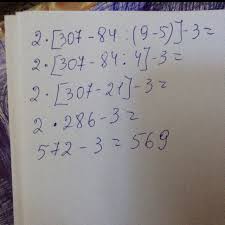 2·[307-84:(9-5)]-3=
2·[307-84:4]-3=
2·[307-21]-3=
2·286-3=
572-3=569